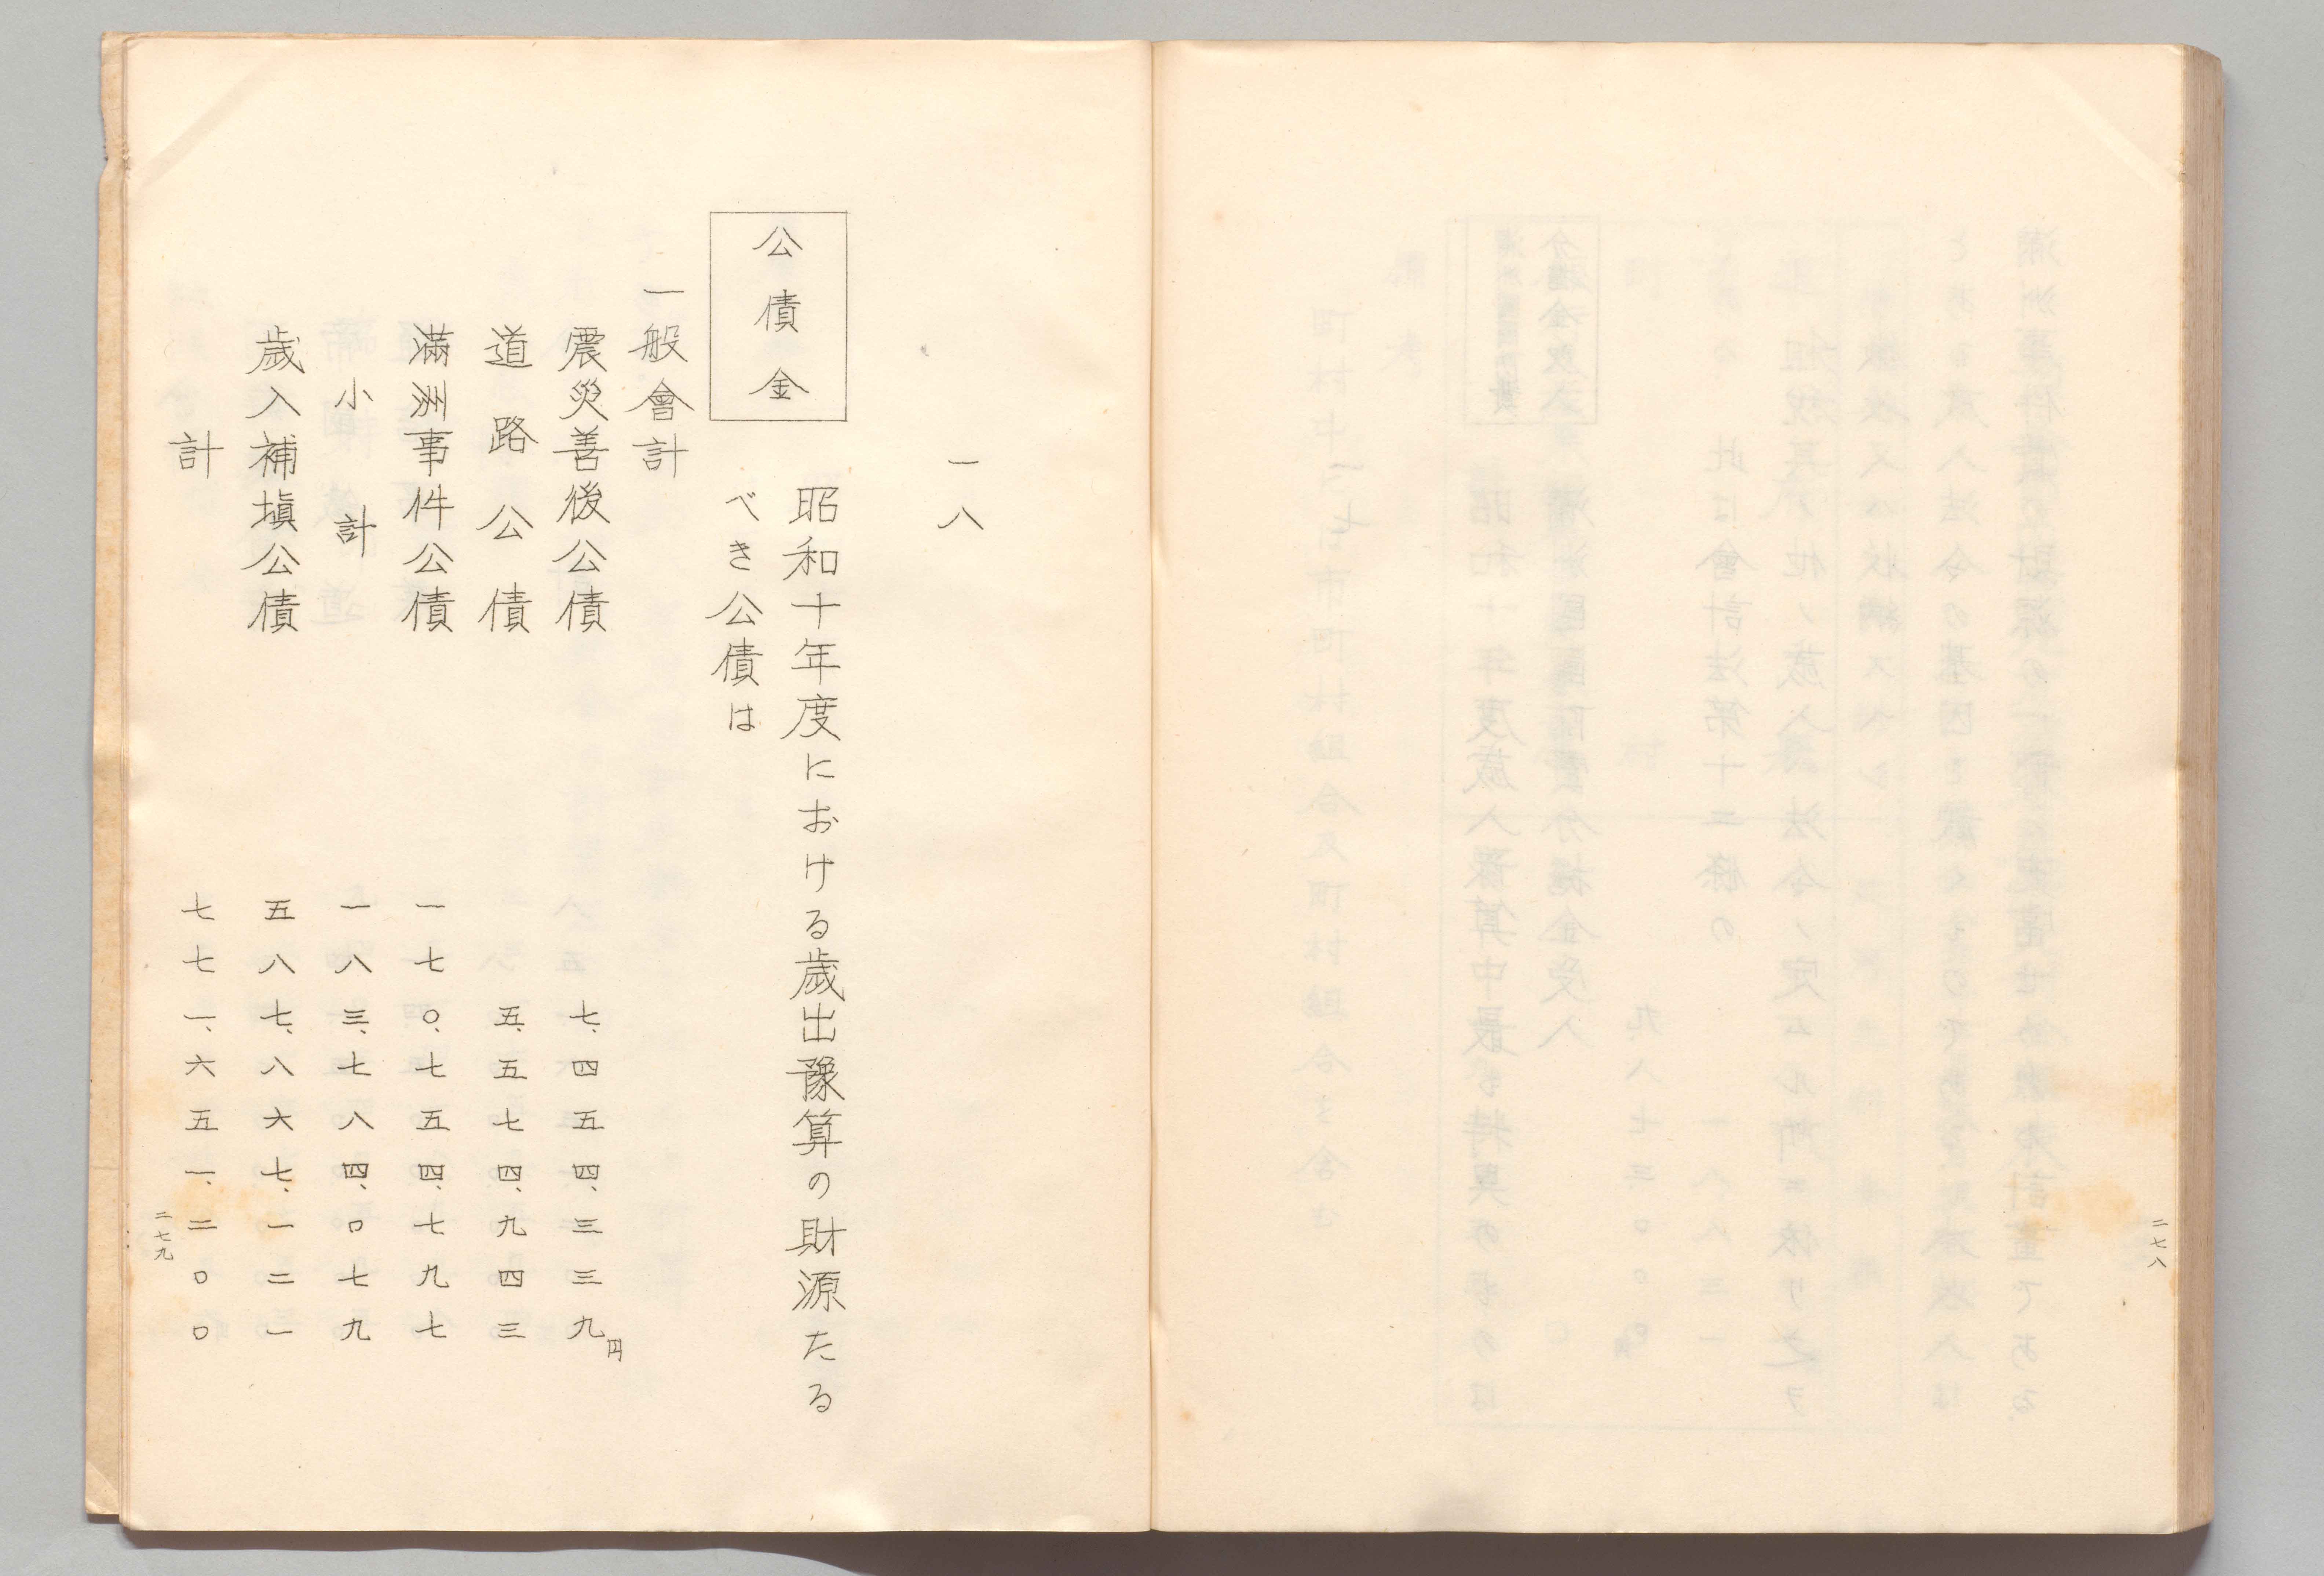 二七八
一八
公債金
昭和十年度における歳出豫算の財源たる
べき公債は
一般會計
震災善後公債 七、四五四、三三九円
道路公債 五、五七四、九四三
滿洲事件公債 一七〇、七五四、七九七
小計 一八三、七八四、〇七九
歳入補塡公債 五八七、八六七、一二一
計 七七一、六五一、二〇〇
二七九